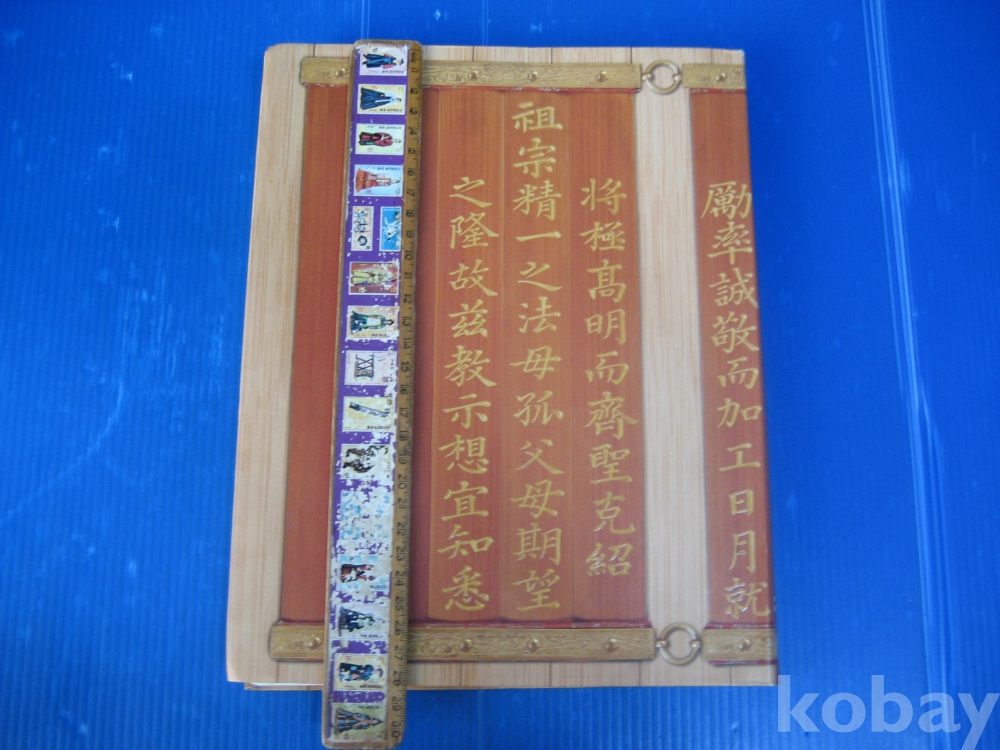 勵率誠敬而加工日月就
將極高明而齊聖克紹
祖宗精一之法毋孤父母期望
之隆故玆教示想宜知悉
kobay